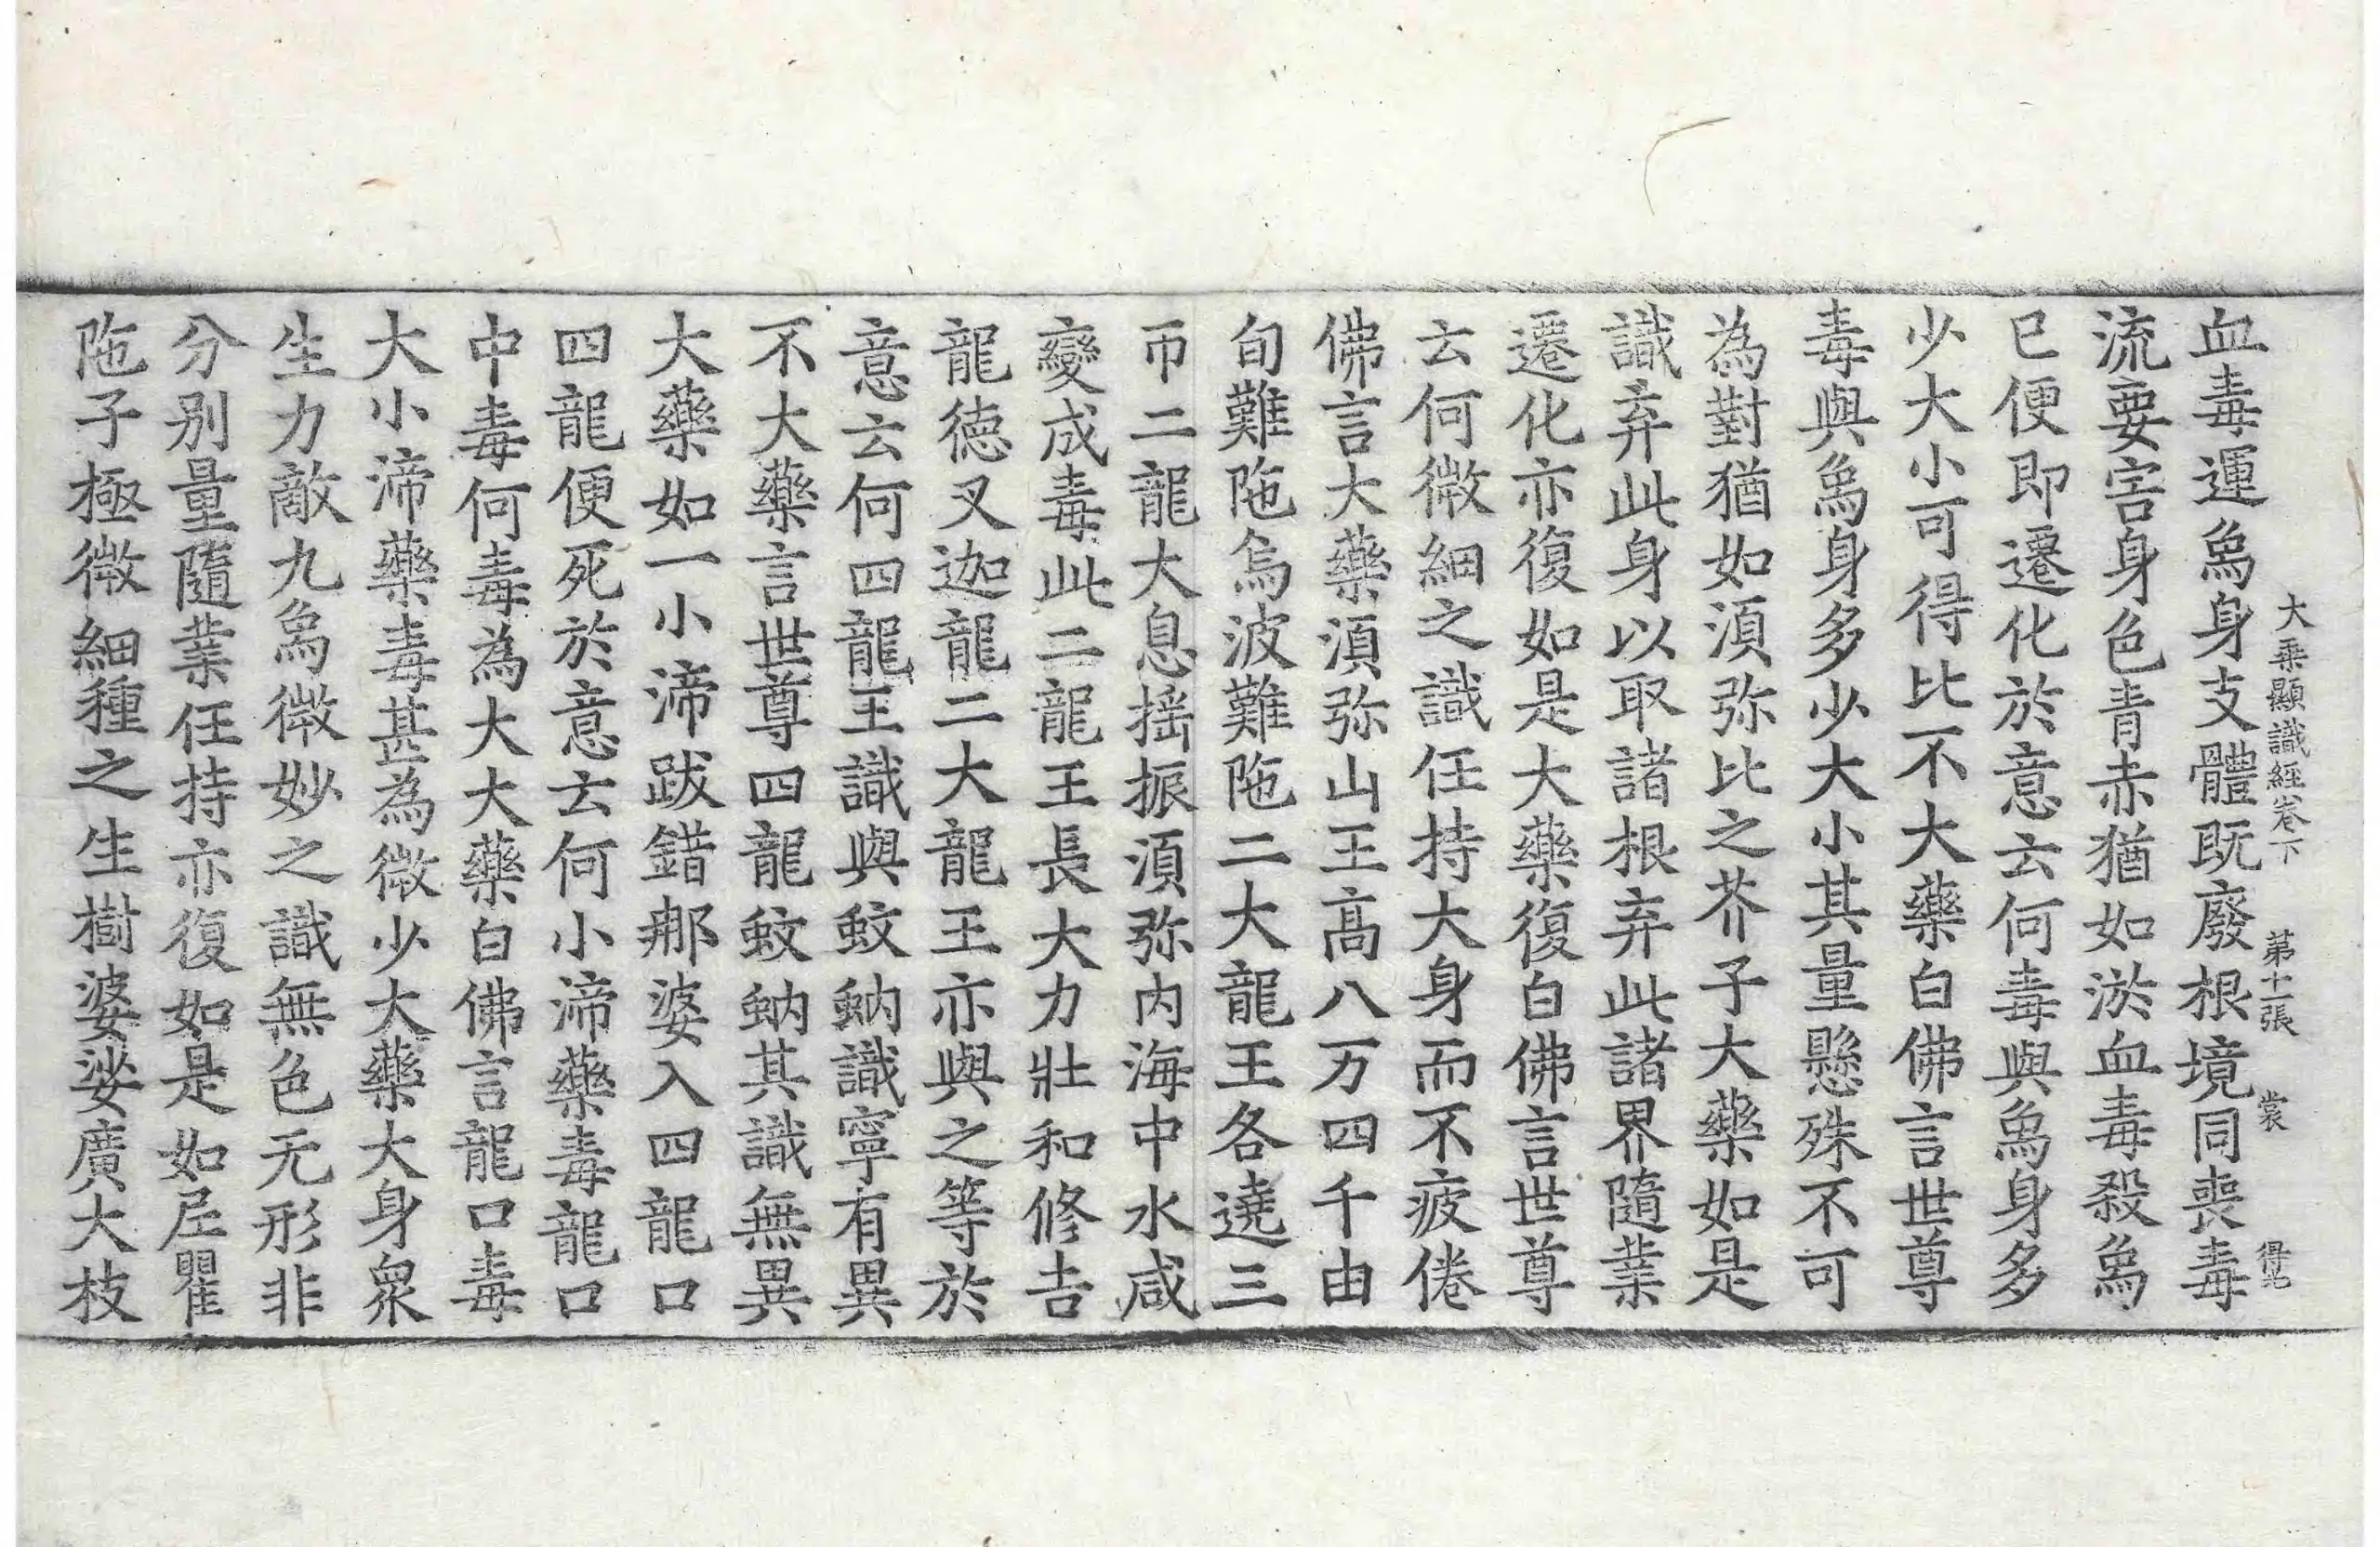 大乘顯識經卷下　第十一張　裳
血毒運爲身支體既廢根境同喪毒
流要害身色青赤猶如淤血毒殺爲
已便即遷化於意云何毒與爲身多
少大小可得比不大藥白佛言世尊
毒與爲身多少大小其量懸殊不可
為對猶如湏弥比之芥子大藥如是
識弃此身以取諸根弃此諸界隨業
遷化亦復如是大藥復白佛言世尊
云何微細之識任持大身而不疲倦
佛言大藥湏弥山王高八万四千由
旬難陁烏波難陁二大龍王各遶三
帀二龍大息揺振湏弥内海中水咸
變成毒此二龍王長大力壯和修吉
龍德叉迦龍二大龍王亦與之等於
意云何四龍王識與蚊蚋識寧有異
不大藥言世尊四龍蚊蚋其識無異
大藥如一小渧跋錯那婆入四龍口
四龍便死於意云何小渧藥毒龍口
中毒何毒為大大藥白佛言龍口毒
大小渧藥毒甚為微少大藥大身衆
生力敵九爲微妙之識無色无形非
分别量隨業任持亦復如是如尼瞿
陁子極微細種之生樹婆娑廣大枝